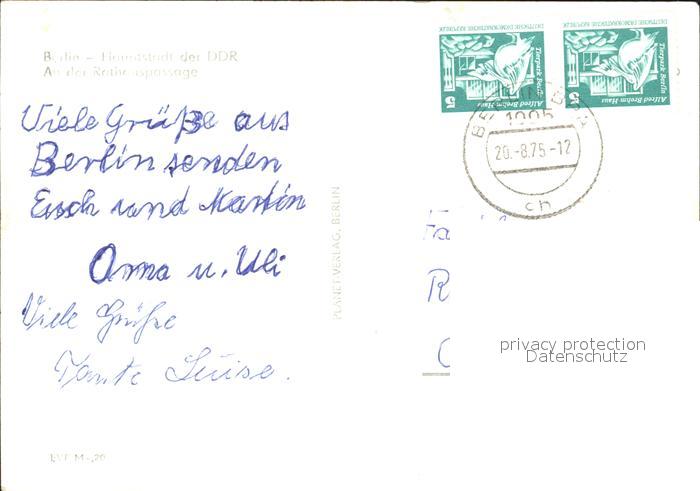 Berlin – Hauptstadt der DDR
An der Rathauspassage
Viele Grüße aus
Berlin senden
Euch und Martin
Anna u. Uli
Viele Grüße
Tante Luise.
EVP M -,20
PLANET-VERLAG, BERLIN
DEUTSCHE DEMOKRATISCHE REPUBLIK
Tierpark Berlin
Alfred Brehm Haus
5
DEUTSCHE DEMOKRATISCHE REPUBLIK
Tierpark Berlin
Alfred Brehm Haus
5
20.-8.75-12
ch
Fa
R
privacy protection
Datenschutz